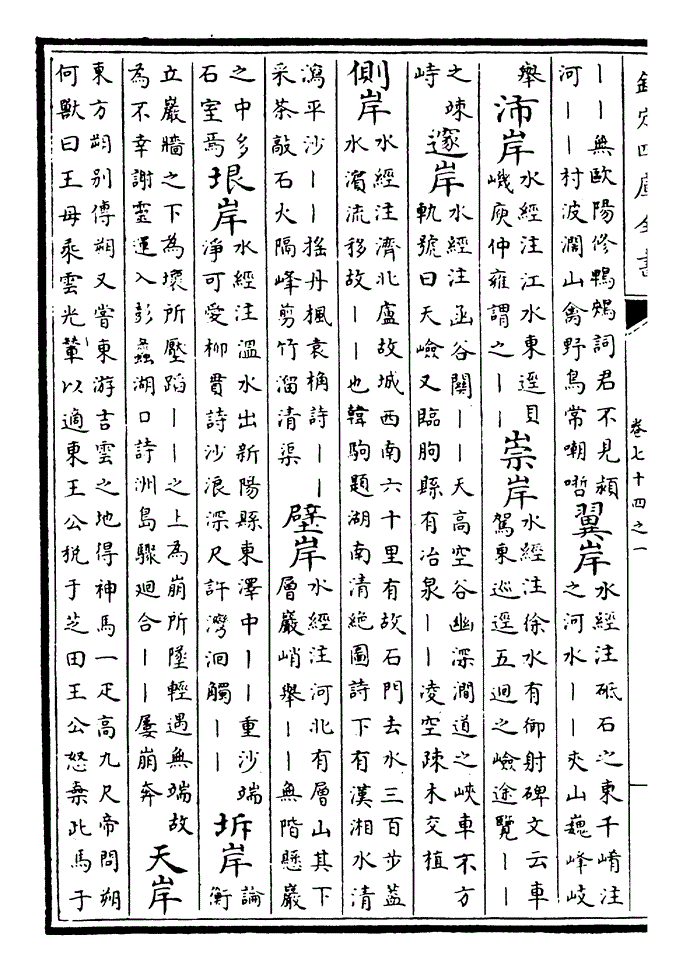 欽定四庫全書
卷七十四之一
――無歐陽修鴨鵶詞君不見潁
河――村波濶山禽野鳥常嘲哳
翼岸
水經注砥石之東千崤注
之河水――夾山巍峰岐
舉
沛岸
水經注江水東逕貝
嶬庾仲雍謂之――
崇岸
水經注徐水有御射碑文云車
駕東巡逕五迴之嶮途覽――
之竦
峙
邃岸
水經注函谷關――天高空谷幽深澗道之峽車不方
軌號曰天嶮又臨朐縣有冶泉――凌空疎木交植
側岸
水經注濟北盧故城西南六十里有故石門去水三百步葢
水濱流移故――也韓駒題湖南清絶圖詩下有漢湘水清
瀉平沙――揺丹楓袁桷詩――
采茶敲石火隔峰剪竹溜清渠
壁岸
水經注河北有層山其下
層巖峭舉――無階懸巖
之中多
石室焉
垠岸
水經注溫水出新陽縣東澤中――重沙端
淨可愛柳貫詩沙浪深尺許灣洄觸――
坼岸
論
衡
立巖牆之下為壞所壓蹈――之上為崩所墜輕遇無端故
為不幸謝靈運入彭蠡湖口詩洲島驟迴合――屢崩奔
天岸
東方朔別傳朔又嘗東游吉雲之地得神馬一疋高九尺帝問朔
何獸曰王母乘雲光輦以適東王公税于芝田王公怒棄此馬于